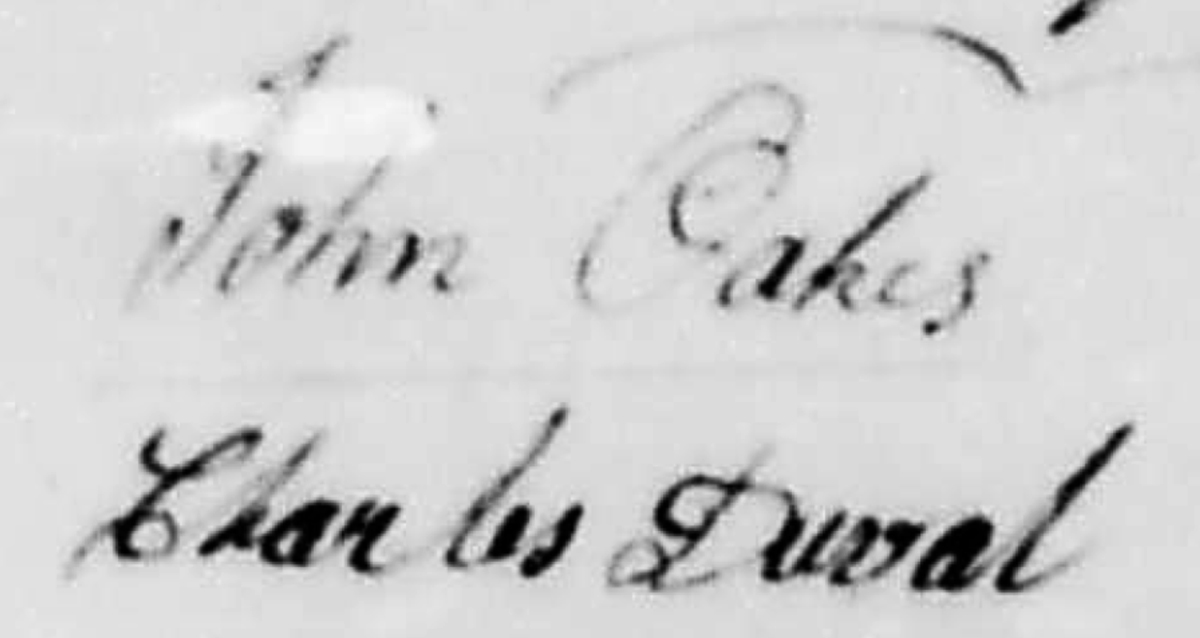 John Oakes
Charles Duval